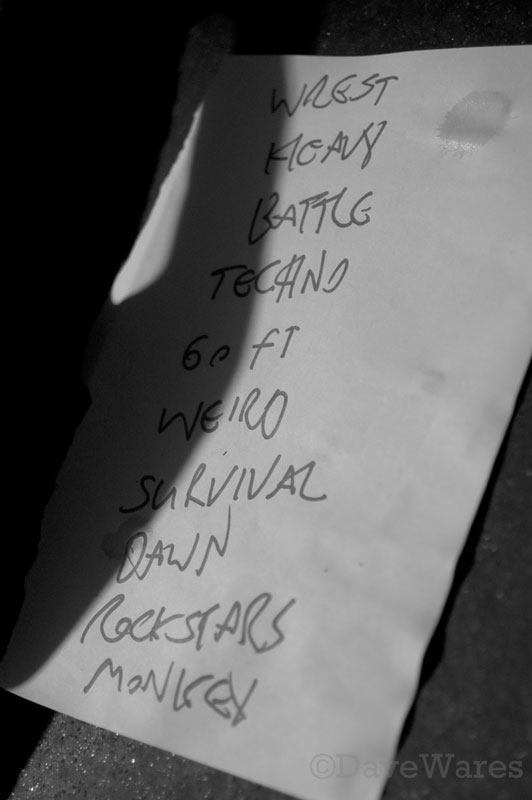 WREST
HEAVY
BATTLE
TECHNO
60 FT
WEIRD
SURVIVAL
DAWN
ROCKSTARS
MONKEY
©DaveWares